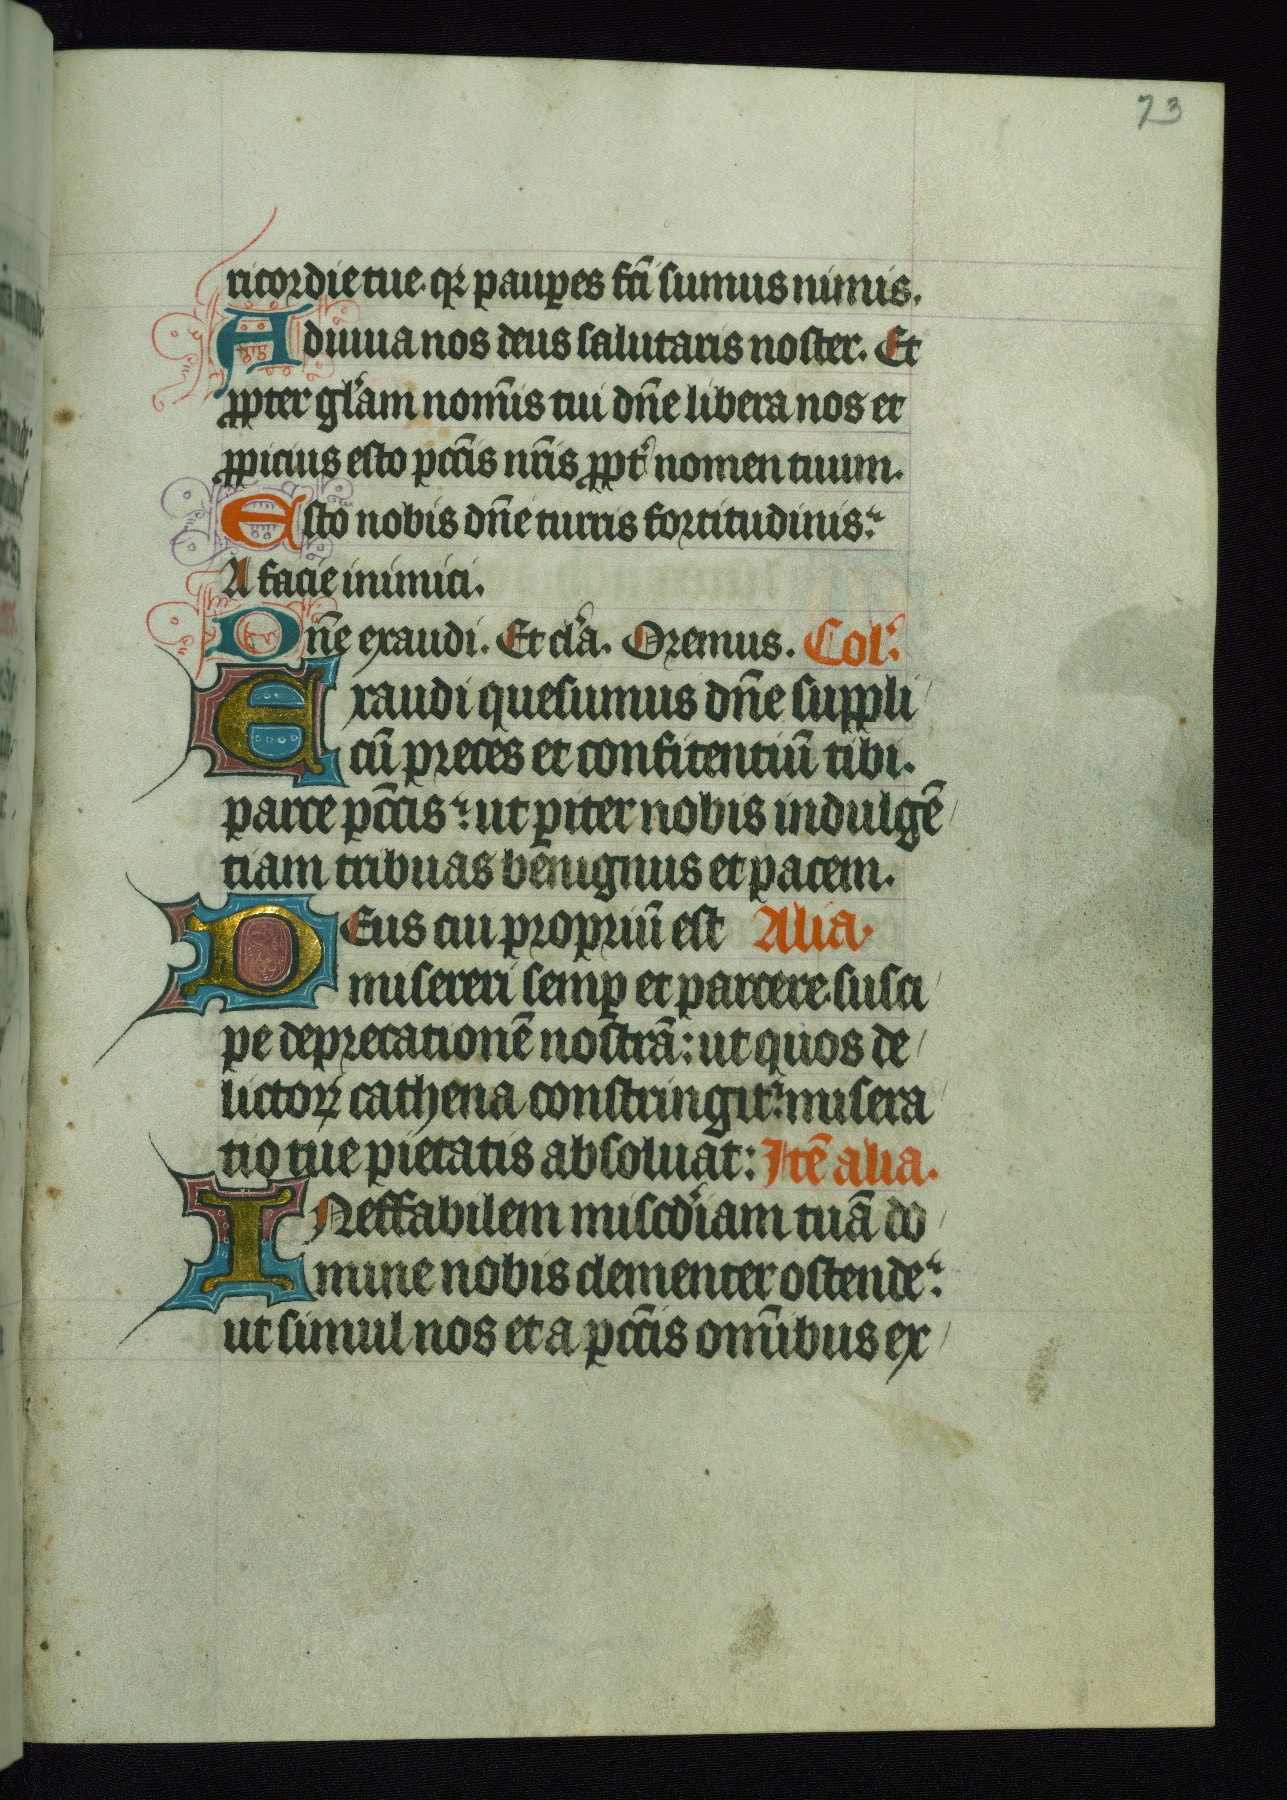 73
ricordie tue. qꝛ pauꝑes fc̄i sumus nimis.
Adiuua nos deus salutaris noster. Et
ꝓpter gl̓am nom̄is tui dn̄e libera nos et
ꝓpicius esto pcc̄is nr̄is ꝓpt̓ nomen tuum.
Esto nobis dn̄e turris fortitudinis:
A facie inimici.
Dn̄e exaudi. Et cl̓a. Oremus. Col̓:
Exaudi quesumus dn̄e suppli
cū preces et confitentiū tibi.
parce pcc̄is: ut ꝑiter nobis indulgē
tiam tribuas benignus et pacem.
DEus cui propriū est Alia.
misereri semꝑ et parcere susci
pe deprecationē nostrā: ut quos de
lictoꝝ cathena constringit: misera
tio tue pietatis absoluat: Itē alia.
INeffabilem miscd̓iam tuā do
mine nobis clementer ostende:
ut simul nos et a pcc̄is om̄ibus ex